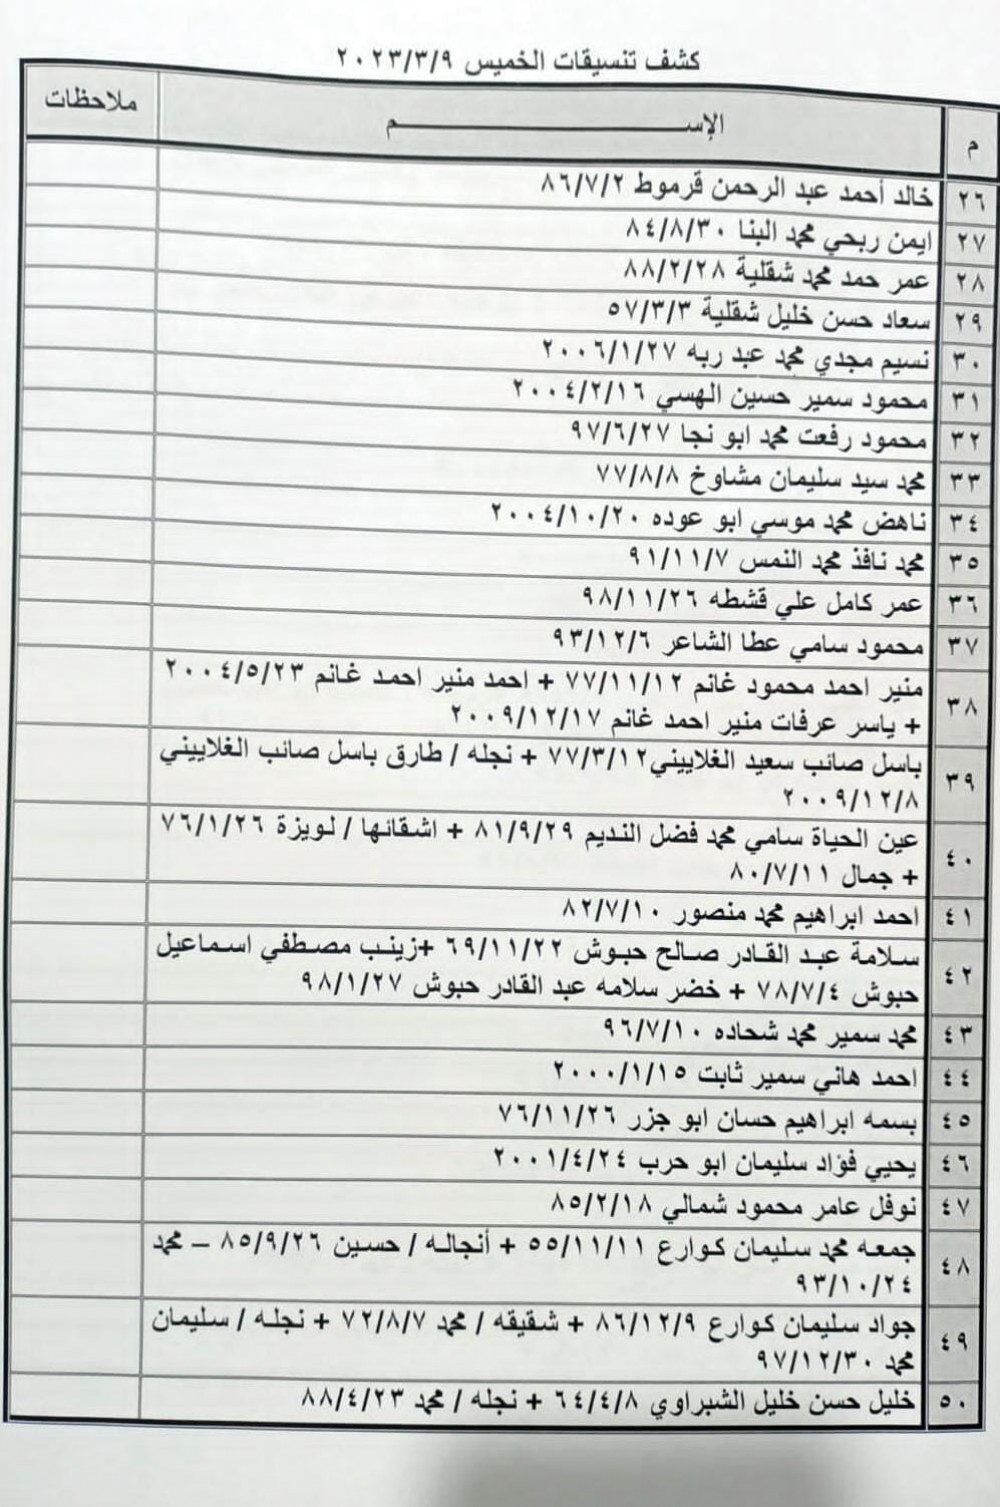 كشف تنسيقات الخميس ٢٠٢٣/٣/٩
م الإســـــــم ملاحظات
٢٦ خالد أحمد عبد الرحمن قرموط ٨٦/٧/٢
٢٧ ايمن ربحي محمد البنا ٨٤/٨/٣٠
٢٨ عمر حمد محمد شقلية ٨٨/٢/٢٨
٢٩ سعاد حسن خليل شقلية ٥٧/٣/٣
٣٠ نسيم مجدي محمد عبد ربه ٢٠٠٦/١/٢٧
٣١ محمود سمير حسين الهسي ٢٠٠٤/٢/١٦
٣٢ محمود رفعت محمد ابو نجا ٩٧/٦/٢٧
٣٣ محمد سيد سليمان مشاوخ ٧٧/٨/٨
٣٤ ناهض محمد موسي ابو عوده ٢٠٠٤/١٠/٢٠
٣٥ محمد نافذ محمد النمس ٩١/١١/٧
٣٦ عمر كامل علي قشطه ٩٨/١١/٢٦
٣٧ محمود سامي عطا الشاعر ٩٣/١٢/٦
٣٨ منير احمد محمود غانم ٧٧/١١/١٢ + احمد منير احمد غانم ٢٠٠٤/٥/٢٣
+ ياسر عرفات منير احمد غانم ٢٠٠٩/١٢/١٧
٣٩ باسل صائب سعيد الغلاييني ٧٧/٣/١٢ + نجله / طارق باسل صائب الغلاييني
٢٠٠٩/١٢/٨
٤٠ عين الحياة سامي محمد فضل النديم ٨١/٩/٢٩ + اشقائها / لويزة ٧٦/١/٢٦
+ جمال ٨٠/٧/١١
٤١ احمد ابراهيم محمد منصور ٨٢/٧/١٠
٤٢ سلامة عبد القادر صالح حبوش ٦٩/١١/٢٢ +زينب مصطفي اسماعيل
حبوش ٧٨/٧/٤ + خضر سلامه عبد القادر حبوش ٩٨/١/٢٧
٤٣ محمد سمير محمد شحاده ٩٦/٧/١٠
٤٤ احمد هاني سمير ثابت ٢٠٠٠/١/١٥
٤٥ بسمه ابراهيم حسان ابو جزر ٧٦/١١/٢٦
٤٦ يحيي فؤاد سليمان ابو حرب ٢٠٠١/٤/٢٤
٤٧ نوفل عامر محمود شمالي ٨٥/٢/١٨
٤٨ جمعه محمد سليمان كوارع ٥٥/١١/١١ + أنجاله / حسين ٨٥/٩/٢٦ – محمد
٩٣/١٠/٢٤
٤٩ جواد سليمان كوارع ٨٦/١٢/٩ + شقيقه / محمد ٧٢/٨/٧ + نجله / سليمان
محمد ٩٧/١٢/٣٠
٥٠ خليل حسن خليل الشبراوي ٦٤/٤/٨ + نجله / محمد ٨٨/٤/٢٣